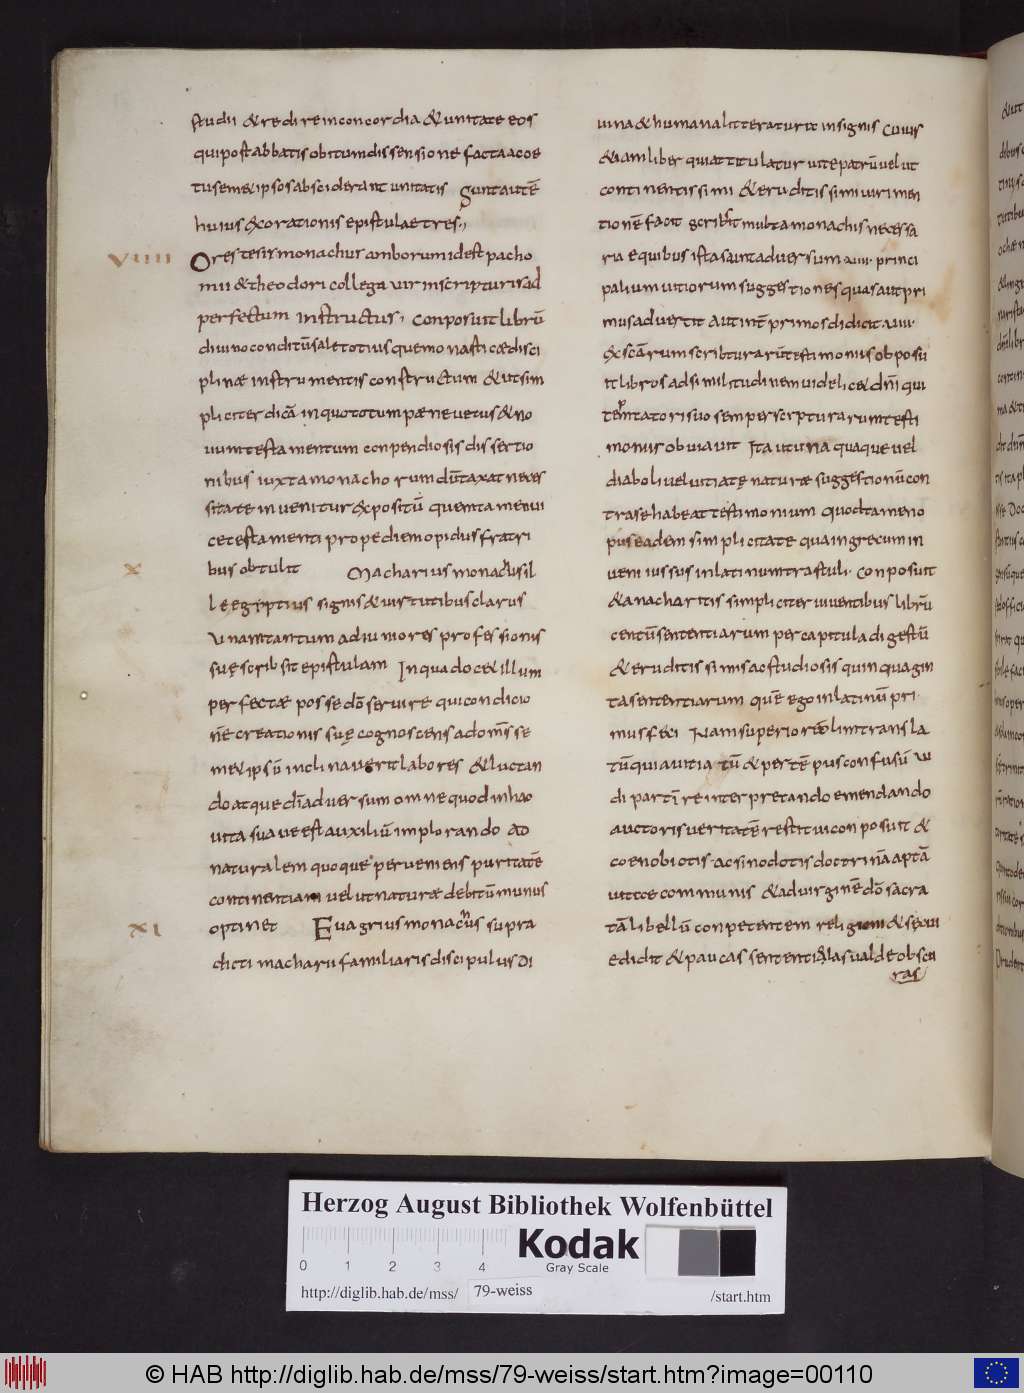 studii & redire in concordia & unitate eos
qui post abbatis obitum dissensione facta a coe
tu semeipsos absciderant unitatis Sunt autē
huius & orationis epistulae tres
VIIII
Oresiesis monachus amborum id est pacho
mii & theodori collega vir in scripturis ad
perfectum instructus conposuit librū
divino conditū sale totiusque monasticæ disci
plinæ instrumentis constructum & ut sim
pliciter dicā in quo totum pæne vetus & no
vum testamentum conpendiosis dissertio
nibus iuxta monachorum dūtaxat neces
sitate invenitur expositū quem tamen vi
ce testamenti prope diem opidus fratri
bus obtulit
X
Macharius monachus il
le egyptius signis & virtutibus clarus
unam tantum ad iuniores professionis
suę scribsit epistulam In qua docet illum
perfectæ posse dō servire qui condicio
nē creationis suę cognoscens ad omēs se
met ipsū inclinaverit labores & luctan
do atque dīm adversum omne quod in hac
vita suave est auxiliū implorando ad
naturalem quoque perveniens puritatē
continentiam velut naturæ debitū munus
optinet
XI
Evagrius monachus supra
dicti macharii familiaris discipulus di
vina & humana litteratura insignis Cuius
& iam liber qui attitulatur vite patrū velut
continentissimi & eruditissimi viri men
tionē facit scribsit multa monachis necessa
ria e quibus ista sunt adversum viiii princi
palium vitiorum suggestiones quas aut pri
mus advertit aut int̄ primos didicit viii
& scārum scribturarū testimoniis obposu
it libros ad similitudinem videlicet dn̄i qui
temtatori suo semper scrptura rum testi
moniis obviavit Ita ut una quaque vel
diaboli vel vitiate naturæ suggestionū con
tras e habeat testimonium quod tamen o
pus eadem simplicitate qua in grecum in
veni iussus in latinum trastuli Conposuit
& anachoritis simpliciter viventibus librū
centū sententiarum per capitula digestū
& eruditissimis ac studiosis quinquagin
ta sententiarum quē ego in latinū pri
mus feci Nam superiorē olim transla
tū quia vitiatū & per tēpus confusū vi
di partī reinterpretando emendando
auctoris veritatē restitui conposuit &
coenobiotis ac sinodotis doctrinā aptā
vitæ communis & ad virginē dō sacra
tā libellū conpetentem religioni & sexui
edidit & paucas sententiolas valde obscu
ras
Herzog August Bibliothek Wolfenbüttel
Kodak
Gray Scale
0 1 2 3 4
http://diglib.hab.de/mss/ 79-weiss /start.htm
© HAB http://diglib.hab.de/mss/79-weiss/start.htm?image=00110